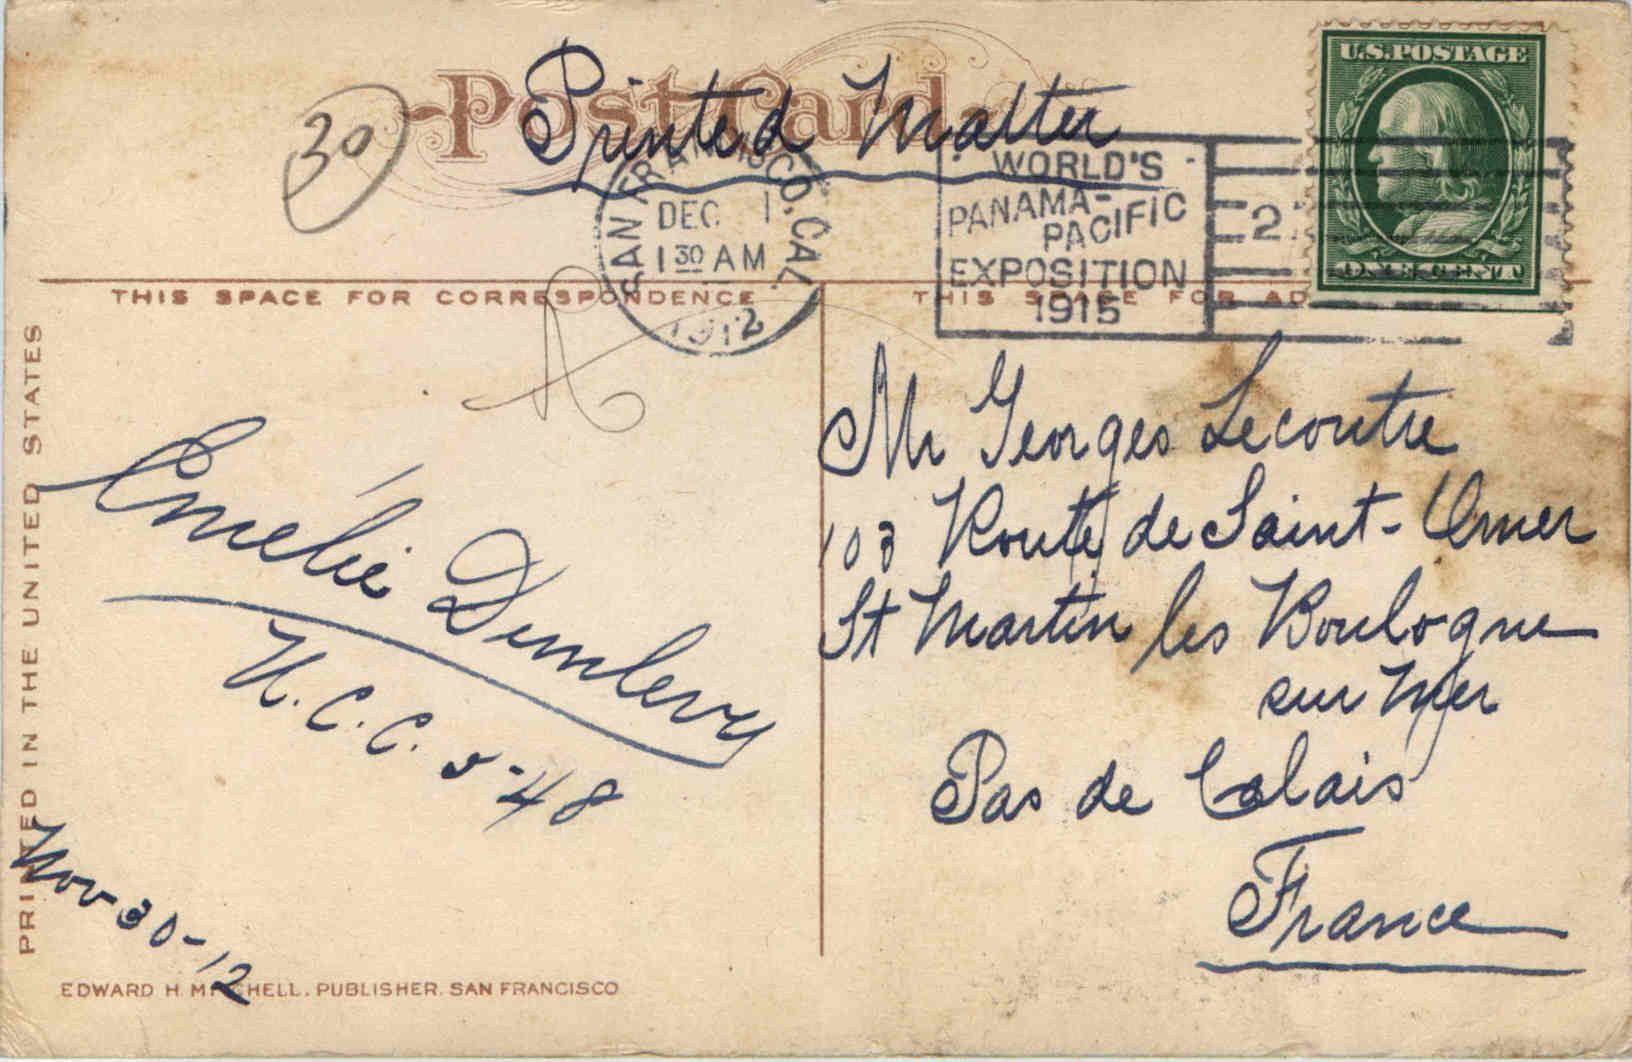 Post Card
Printed Matter
30
SAN FRANCISCO, CAL.
DEC 1
1 30 AM
1912
WORLD'S
PANAMA-
PACIFIC
EXPOSITION
1915
2
U.S.POSTAGE
ONE CENT
THIS SPACE FOR CORRESPONDENCE
THIS SPACE FOR AD
PRINTED IN THE UNITED STATES
Emélie Dunlevy
U.C.C. 5-48
Nov 30-12
Mr Georges Lecoutre
103 Route de Saint-Omer
St Martin les Boulogne
sur Mer
Pas de Calais
France
EDWARD H. MITCHELL, PUBLISHER, SAN FRANCISCO